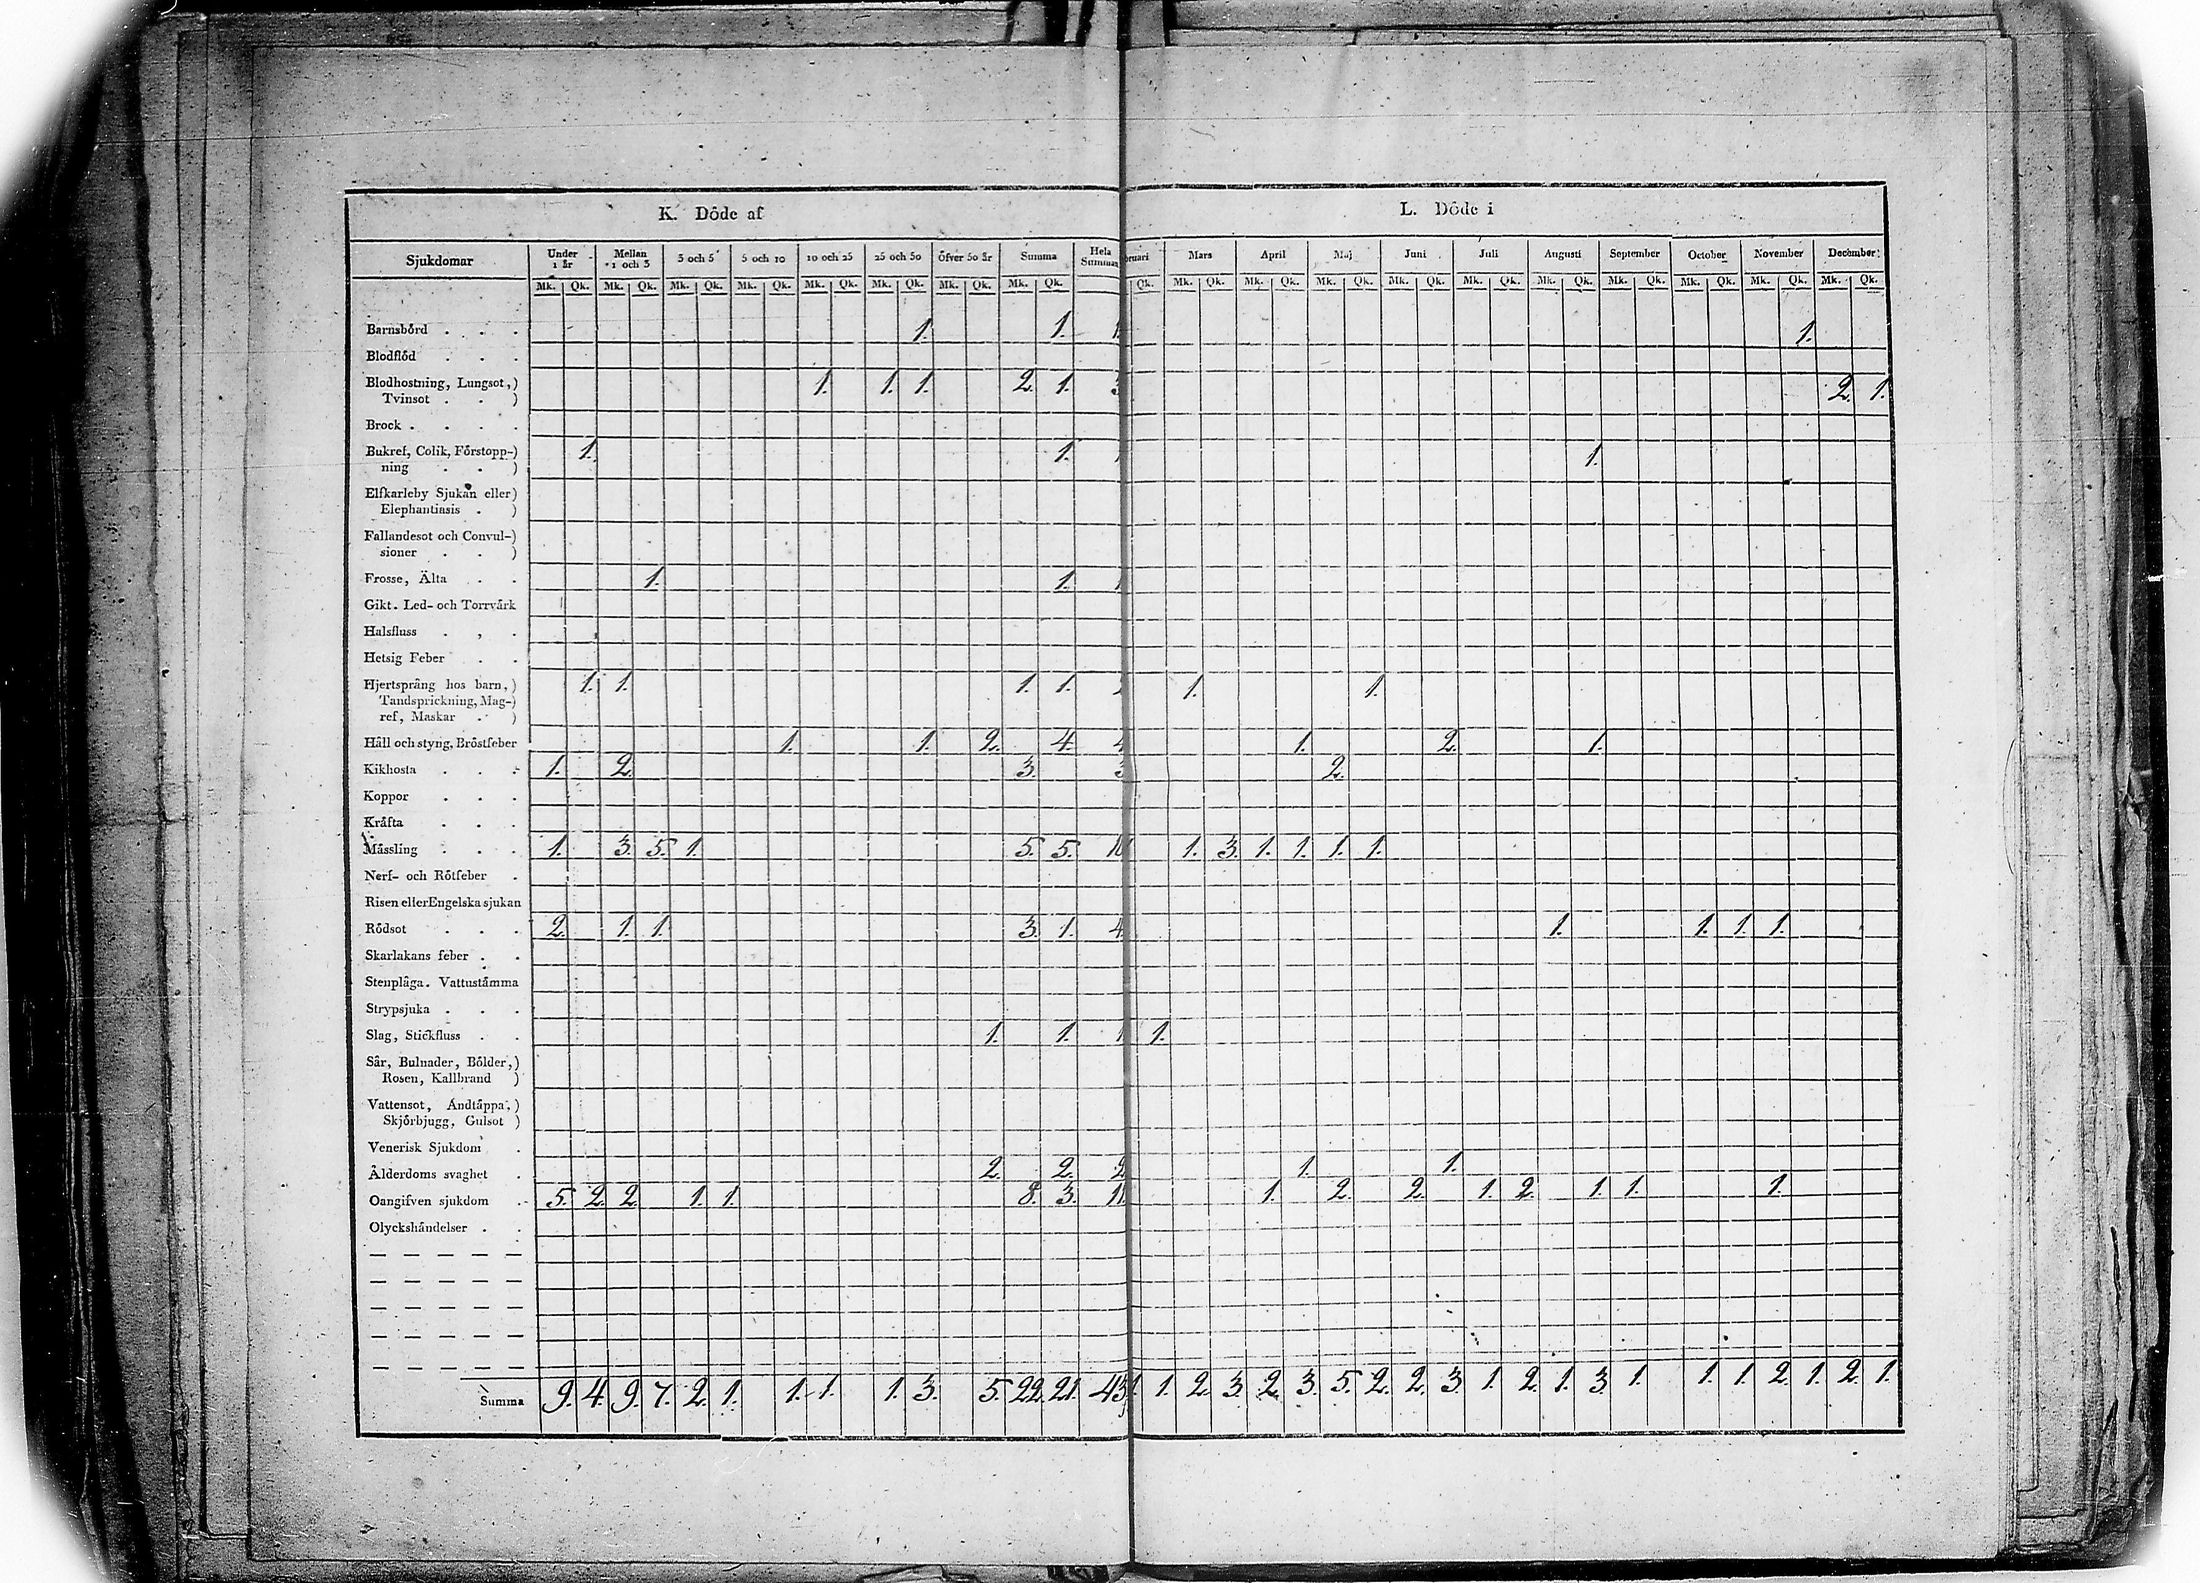 K. Döde af L. Döde i
Sjukdomar Under 1 år Mellan 1 och 3 3 och 5 5 och 10 10 och 25 25 och 50 Öfver 50 år Summa Hela Summan bruari Mars April Maj Juni Juli Augusti September October November December
Mk. Qk. Mk. Qk. Mk. Qk. Mk. Qk. Mk. Qk. Mk. Qk. Mk. Qk. Mk. Qk. Qk. Mk. Qk. Mk. Qk. Mk. Qk. Mk. Qk. Mk. Qk. Mk. Qk. Mk. Qk. Mk. Qk. Mk. Qk. Mk. Qk.
Barnsbörd . . . 1. 1. 1 1.
Blodflöd . . .
Blodhostning, Lungsot,) 1. 1. 1. 2. 1. 3 2. 1.
Tvinsot . . )
Brock . . . .
Bukref, Colik, Förstopp-) 1. 1. 1 1.
ning . . )
Elfkarleby Sjukan eller)
Elephantiasis . )
Fallandesot och Convul-)
sioner . . )
Frosse, Älta . . 1. 1. 1
Gikt. Led- och Torrvärk
Halsfluss . , .
Hetsig Feber . .
Hjertsprång hos barn,) 1. 1. 1. 1. 2 1. 1.
Tandsprickning, Mag-)
ref, Maskar . )
Håll och styng, Bröstfeber 1. 1. 2. 4. 4 1. 2. 1.
Kikhosta . . . 1. 2. 3. 3 2.
Koppor . . .
Kräfta . . .
Mässling . . . 1. 3. 5. 1. 5. 5. 10 1. 3. 1. 1. 1. 1.
Nerf- och Rötfeber .
Risen eller Engelska sjukan
Rödsot . . . 2. 1. 1. 3. 1. 4. 1. 1. 1. 1.
Skarlakans feber . .
Stenplåga. Vattustämma
Strypsjuka . . .
Slag, Stickfluss . . 1. 1. 1 1.
Sår, Bulnader, Bölder,)
Rosen, Kallbrand )
Vattensot, Andtäppa,)
Skjörbjugg, Gulsot )
Venerisk Sjukdom .
Ålderdoms svaghet . 2. 2. 2 1. 1.
Oangifven sjukdom . 5. 2. 2. 1. 1. 8. 3. 11 1. 2. 2. 1. 2. 1. 1. 1.
Olyckshändelser . .
Summa 9. 4. 9. 7. 2. 1. 1. 1. 1. 3. 5. 22. 21. 43 1. 1. 2. 3. 2. 3. 5. 2. 2. 3. 1. 2. 1. 3. 1. 1. 1. 2. 1. 2. 1.